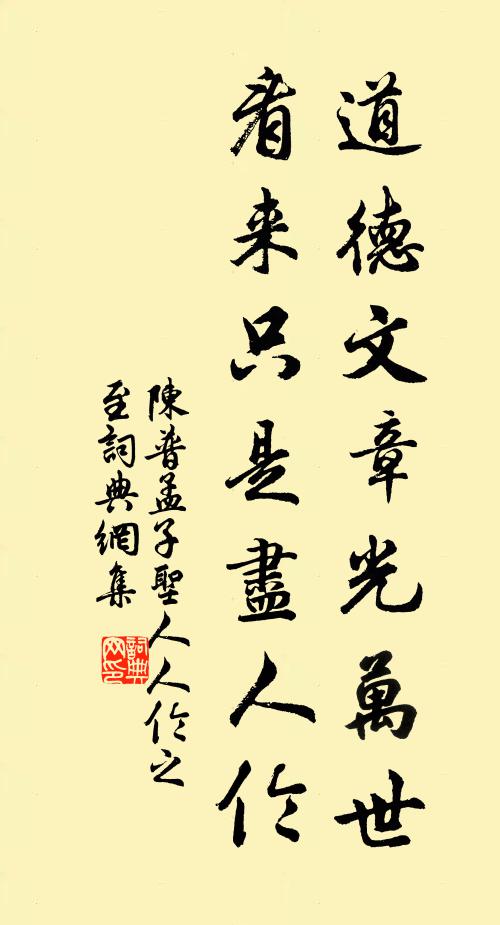 道德文章光萬世
看来只是盡人伦
陳普孟子聖人人伦之
至詞典網集
詞典
网印